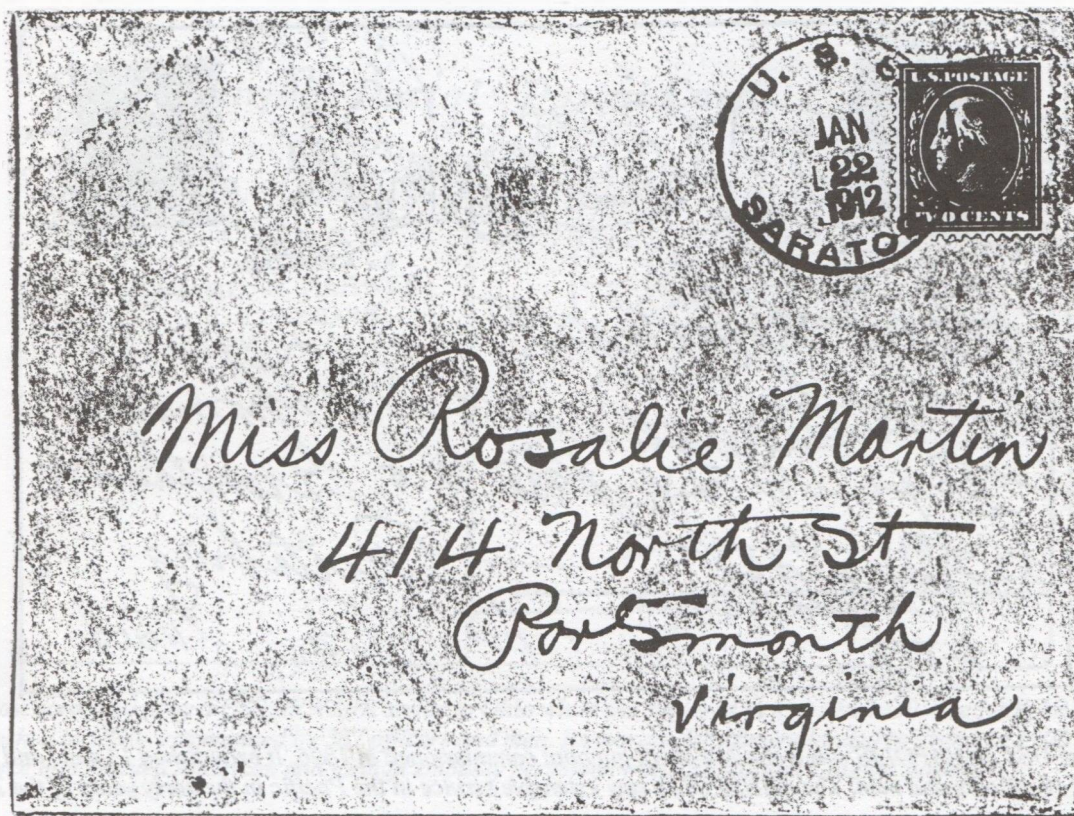 U. S. S.
JAN
22
1912
SARATO
U.S. POSTAGE
TWO CENTS
Miss Rosalie Martin
414 North St
Portsmouth
Virginia